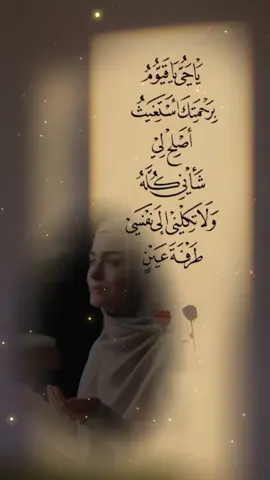 يَا حَيُّ يَا قَيُّومُ
بِرَحْمَتِكَ أَسْتَغِيثُ
أَصْلِحْ لِي
شَأْنِي كُلَّهُ
وَلَا تَكِلْنِي إِلَى نَفْسِي
طَرْفَةَ عَيْنٍ